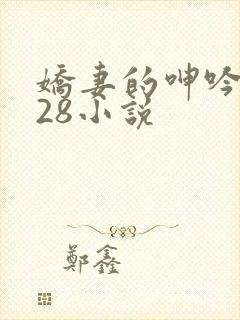 嬌妻的呻吟
28小說
鄭鑫